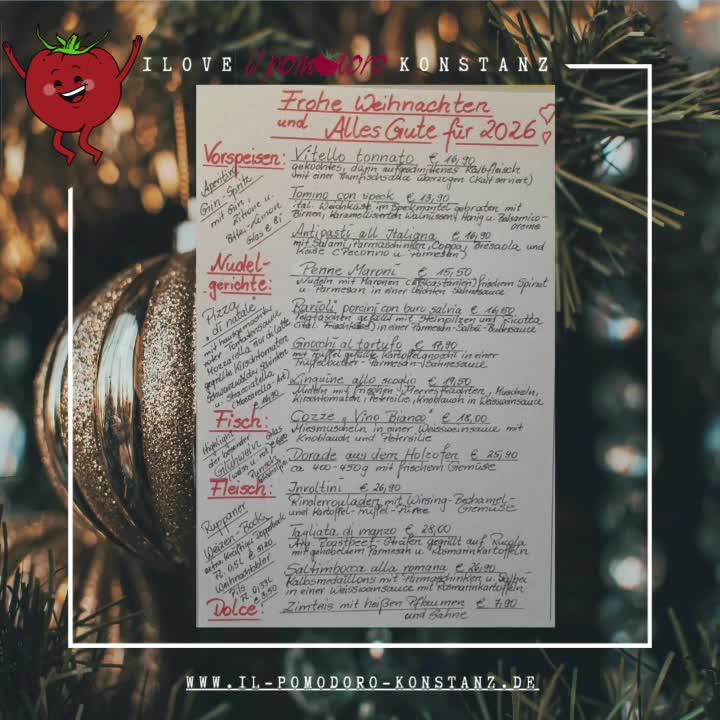 I LOVE il pomodoro KONSTANZ
Frohe Weihnachten
und Alles Gute für 2026!
Vorspeisen:
Vitello tonnato € 16,90
gekochtes, dünn aufgeschnittenes Kalbfleisch
mit einer Thunfischsauce überzogen (kalt serviert)
Tomino con speck € 13,90
ital. Weichkäse im Speckmantel gebraten mit
Birnen, karamellisierten Walnüssen, Honig u. Balsamico-
creme
Antipasti all Italiana € 16,90
mit Salami, Parmaschinken, Coppa, Bresaola und
Käse (Pecorino u. Parmesan)
Aperitivo
Gin-Spritz
mit Gin,
Zitrone u.
Glas € 8,-
Nudel-
gerichte:
Penne Maroni € 15,50
Nudeln mit Maronen (Esskastanien) frischem Spinat
u. Parmesan in einer leichten Sahnesauce
Ravioli porcini con burro salvia € 16,50
Teigtaschen gefüllt mit Steinpilzen und Ricotta
(ital. Frischkäse) in einer Parmesan-Salbei-Buttersauce
Gnocchi al tartufo € 17,90
mit Trüffel gefüllte Kartoffelgnocchi in einer
Trüffelbutter-Parmesan-Sahnesauce
Linguine allo scoglio € 19,50
Nudeln mit frischen Meeresfrüchten, Muscheln,
Kirschtomaten, Petersilie, Knoblauch in Weissweinsauce
Pizza
di natale
mit hausgemachter
Tomatensauce
Mozzarella Fior di Latte
gegrillte Kirschtomaten
Schwarzwälder Schinken
u. Stracciatella
Fisch:
Cozze „Vino Bianco“ € 18,00
Miesmuscheln in einer Weissweinsauce mit
Knoblauch und Petersilie
Dorade aus dem Holzofen € 25,90
ca 400-450g mit frischem Gemüse
Highlight
der besondere
Glühwein
(weiss u. rot)
Fleisch:
Involtini € 26,90
Rinderrouladen mit Wirsing-Bechamel-
Gemüse
und Kartoffel-Trüffel-Püree
Tagliata di manzo € 28,00
gegrillt auf Rucola
mit gehobeltem Parmesan u. Rosmarinkartoffeln
Saltimbocca alla romana € 26,90
Kalbsmedaillons mit Parmaschinken u. Salbei
in einer Weissweinsauce mit Rosmarinkartoffeln
Ruppaner
Weizen-Bock
Fl. 0,5L
Weihnachtsbier
Pils
Fl. 0,33L
€ 3,50
Dolce:
Zimteis mit heißen Pflaumen € 7,90
und Sahne
WWW.IL-POMODORO-KONSTANZ.DE